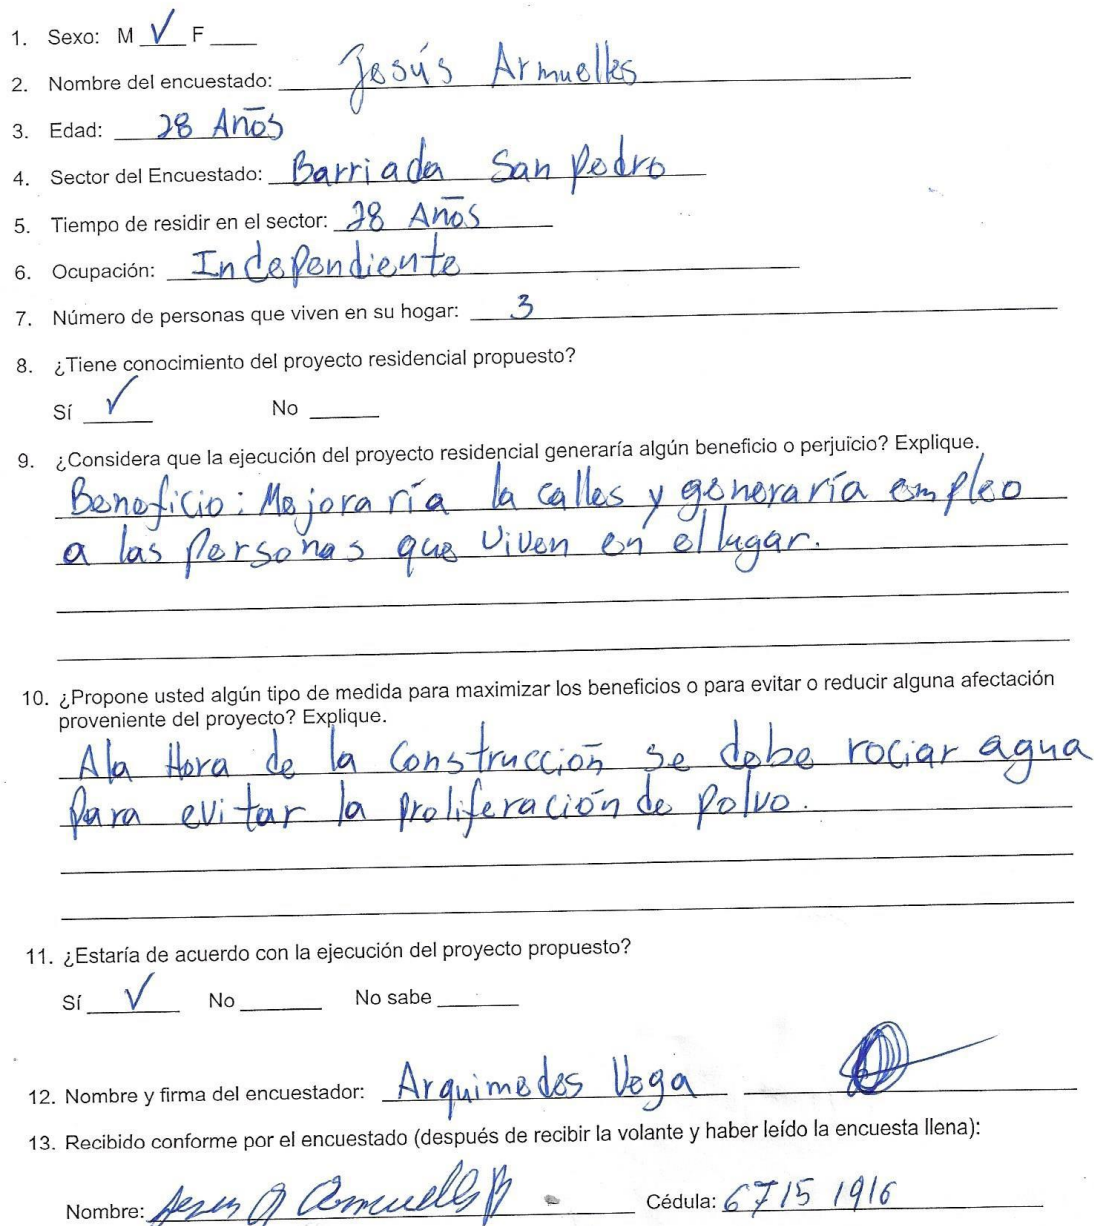 1. Sexo: M √ F ____
2. Nombre del encuestado: Jesús Armuelles
3. Edad: 28 Años
4. Sector del Encuestado: Barriada San Pedro
5. Tiempo de residir en el sector: 28 Años
6. Ocupación: Independiente
7. Número de personas que viven en su hogar: 3
8. ¿Tiene conocimiento del proyecto residencial propuesto?
Sí √ No ____
9. ¿Considera que la ejecución del proyecto residencial generaría algún beneficio o perjuicio? Explique.
Beneficio: Mejoraría la calles y generaría empleo
a las personas que viven en el lugar.
10. ¿Propone usted algún tipo de medida para maximizar los beneficios o para evitar o reducir alguna afectación
proveniente del proyecto? Explique.
Ala Hora de la Construcción se debe rociar agua
Para evitar la proliferación de polvo.
11. ¿Estaría de acuerdo con la ejecución del proyecto propuesto?
Sí √ No ____ No sabe ____
12. Nombre y firma del encuestador: Arquimedes Vega
13. Recibido conforme por el encuestado (después de recibir la volante y haber leído la encuesta llena):
Nombre: Cédula: 6 715 1916